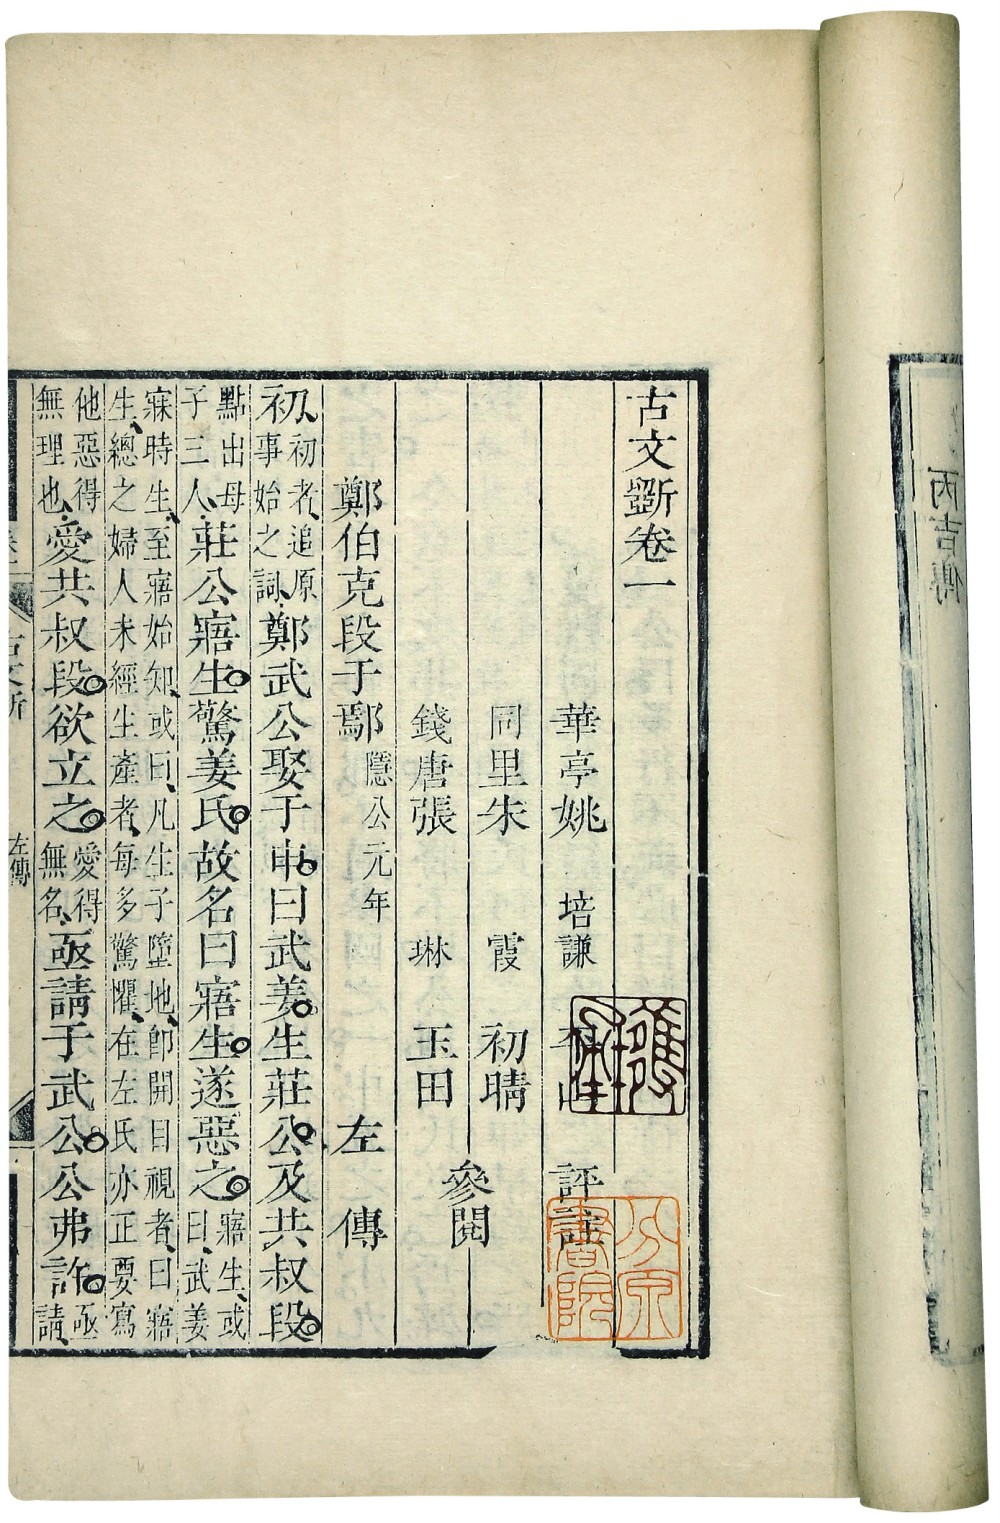 丙吉傳
古文斲卷一
華亭姚培謙平山評註
同里朱霞初晴
參閱
錢唐張琳玉田
鄭伯克段于鄢隱公元年左傳
初初者、追原事始之詞、鄭武公娶于申曰武姜生莊公及共叔段
點出母子三人、莊公寤生驚姜氏故名曰寤生遂惡之寤生、或曰、武姜
寐時生、至寤始知、或曰、凡生子墮地、卽開目視者、曰寤
生、總之婦人未經生產者、每多驚懼、在左氏亦正要寫
他惡得無理也、愛共叔段欲立之愛得無名、亟請于武公公弗許亟請、
古文斫
左傳